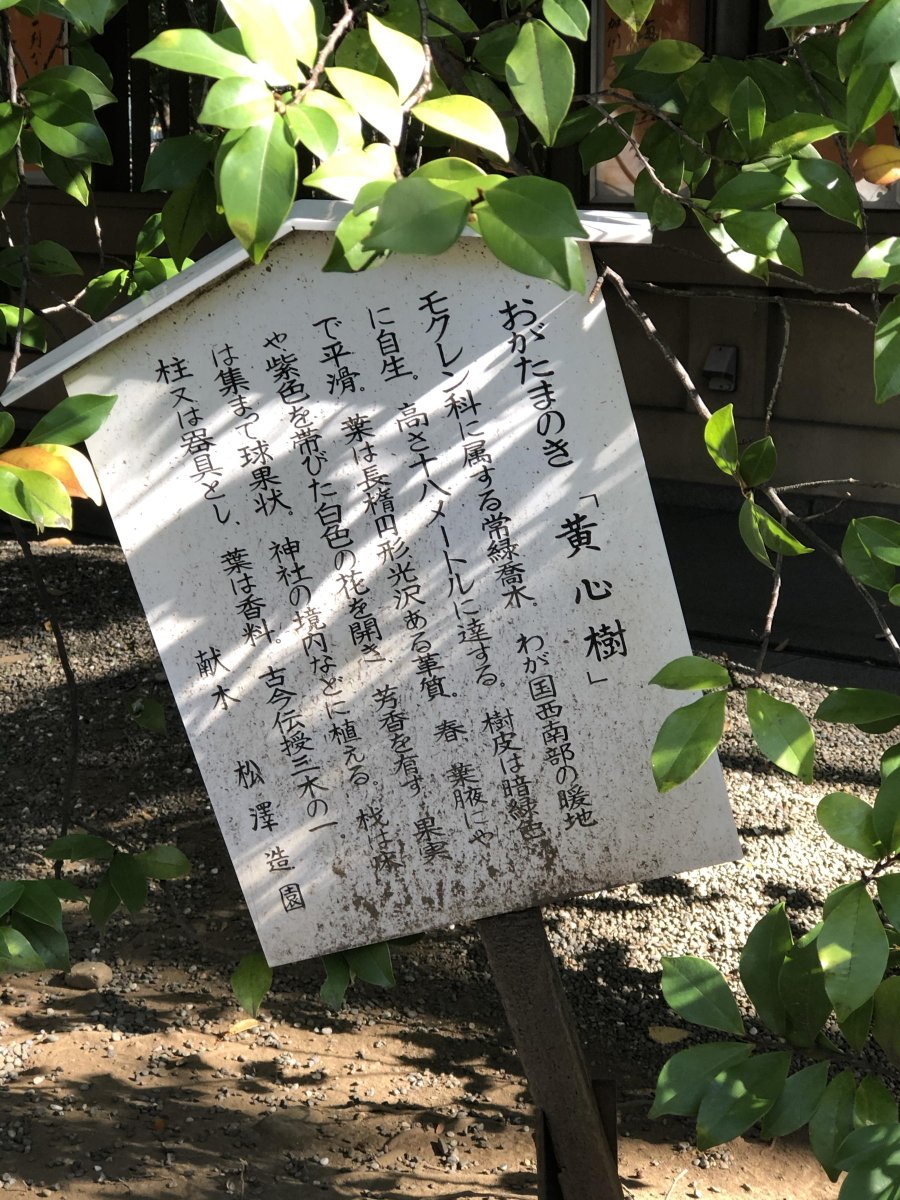 おがたまのき 「黄心樹」
モクレン科に属する常緑喬木。わが国西南部の暖地
に自生。高さ十八メートルに達する。樹皮は暗緑色
で平滑。葉は長楕円形光沢ある革質。春、葉腋にや
や紫色を帯びた白色の花を開き、芳香を有す。果実
は集まって球果状。神社の境内などに植える。材は床
柱又は器具とし、葉は香料。古今伝授三木の一。
献木 松澤造園